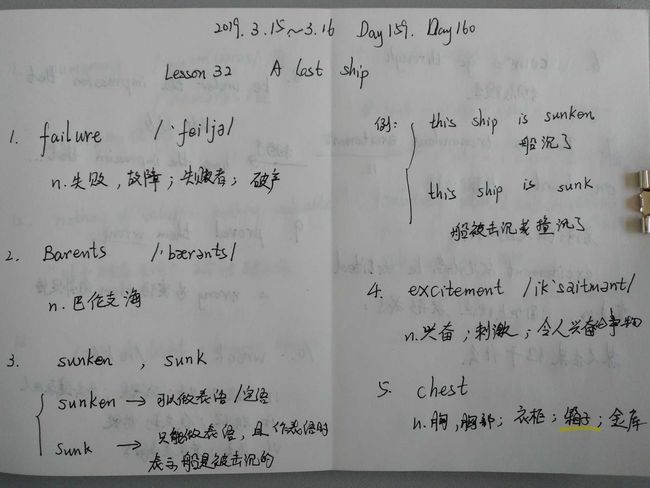 2019. 3.15~3.16 Day 159. Day 160
Lesson 32 A lost ship
1. failure /'feiljə/
n. 失败, 故障; 失败者; 破产
2. Barents /'bærənts/
n. 巴伦支海
3. sunken , sunk
sunken → 可以做表语/定语
sunk → 只能做表语, 且作表语时
表示船是被击沉的
例: this ship is sunken
船沉了
this ship is sunk
船被击沉或撞沉了
4. excitement /ik'saitmənt/
n. 兴奋; 刺激; 令人兴奋的事物
5. chest
n. 胸, 胸部; 衣柜; 箱子; 金库